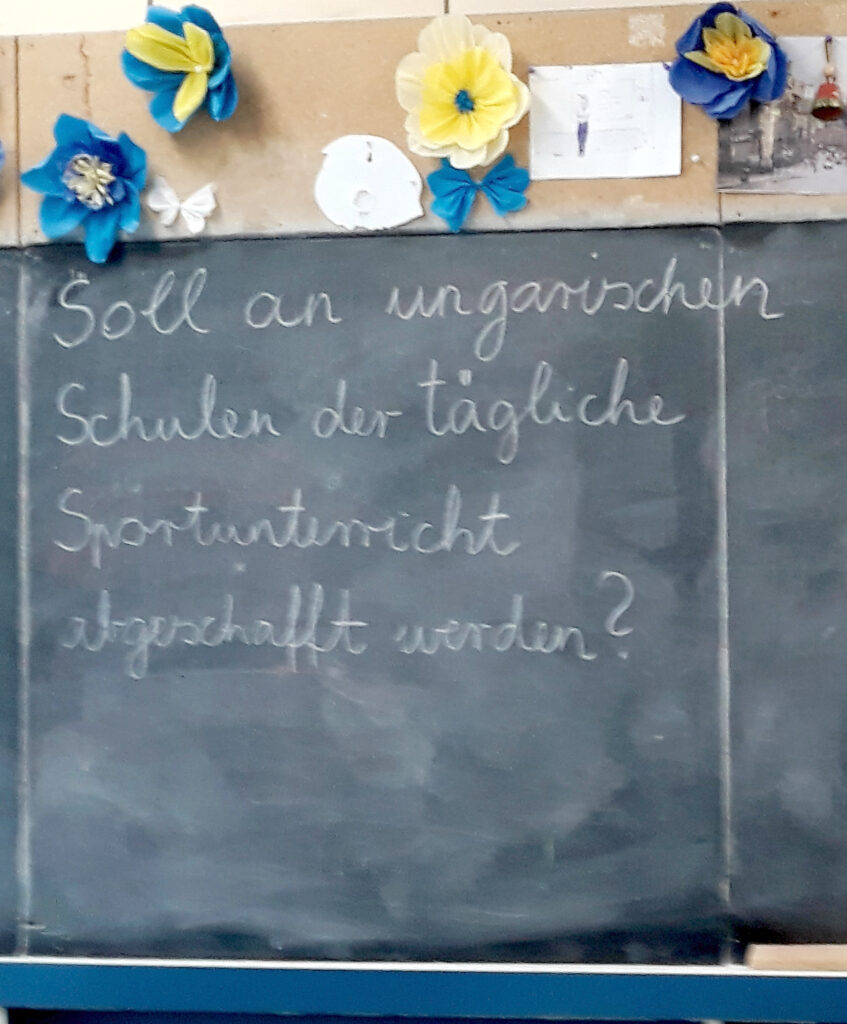 Soll an ungarischen
Schulen der tägliche
Sportunterricht
abgeschafft werden?